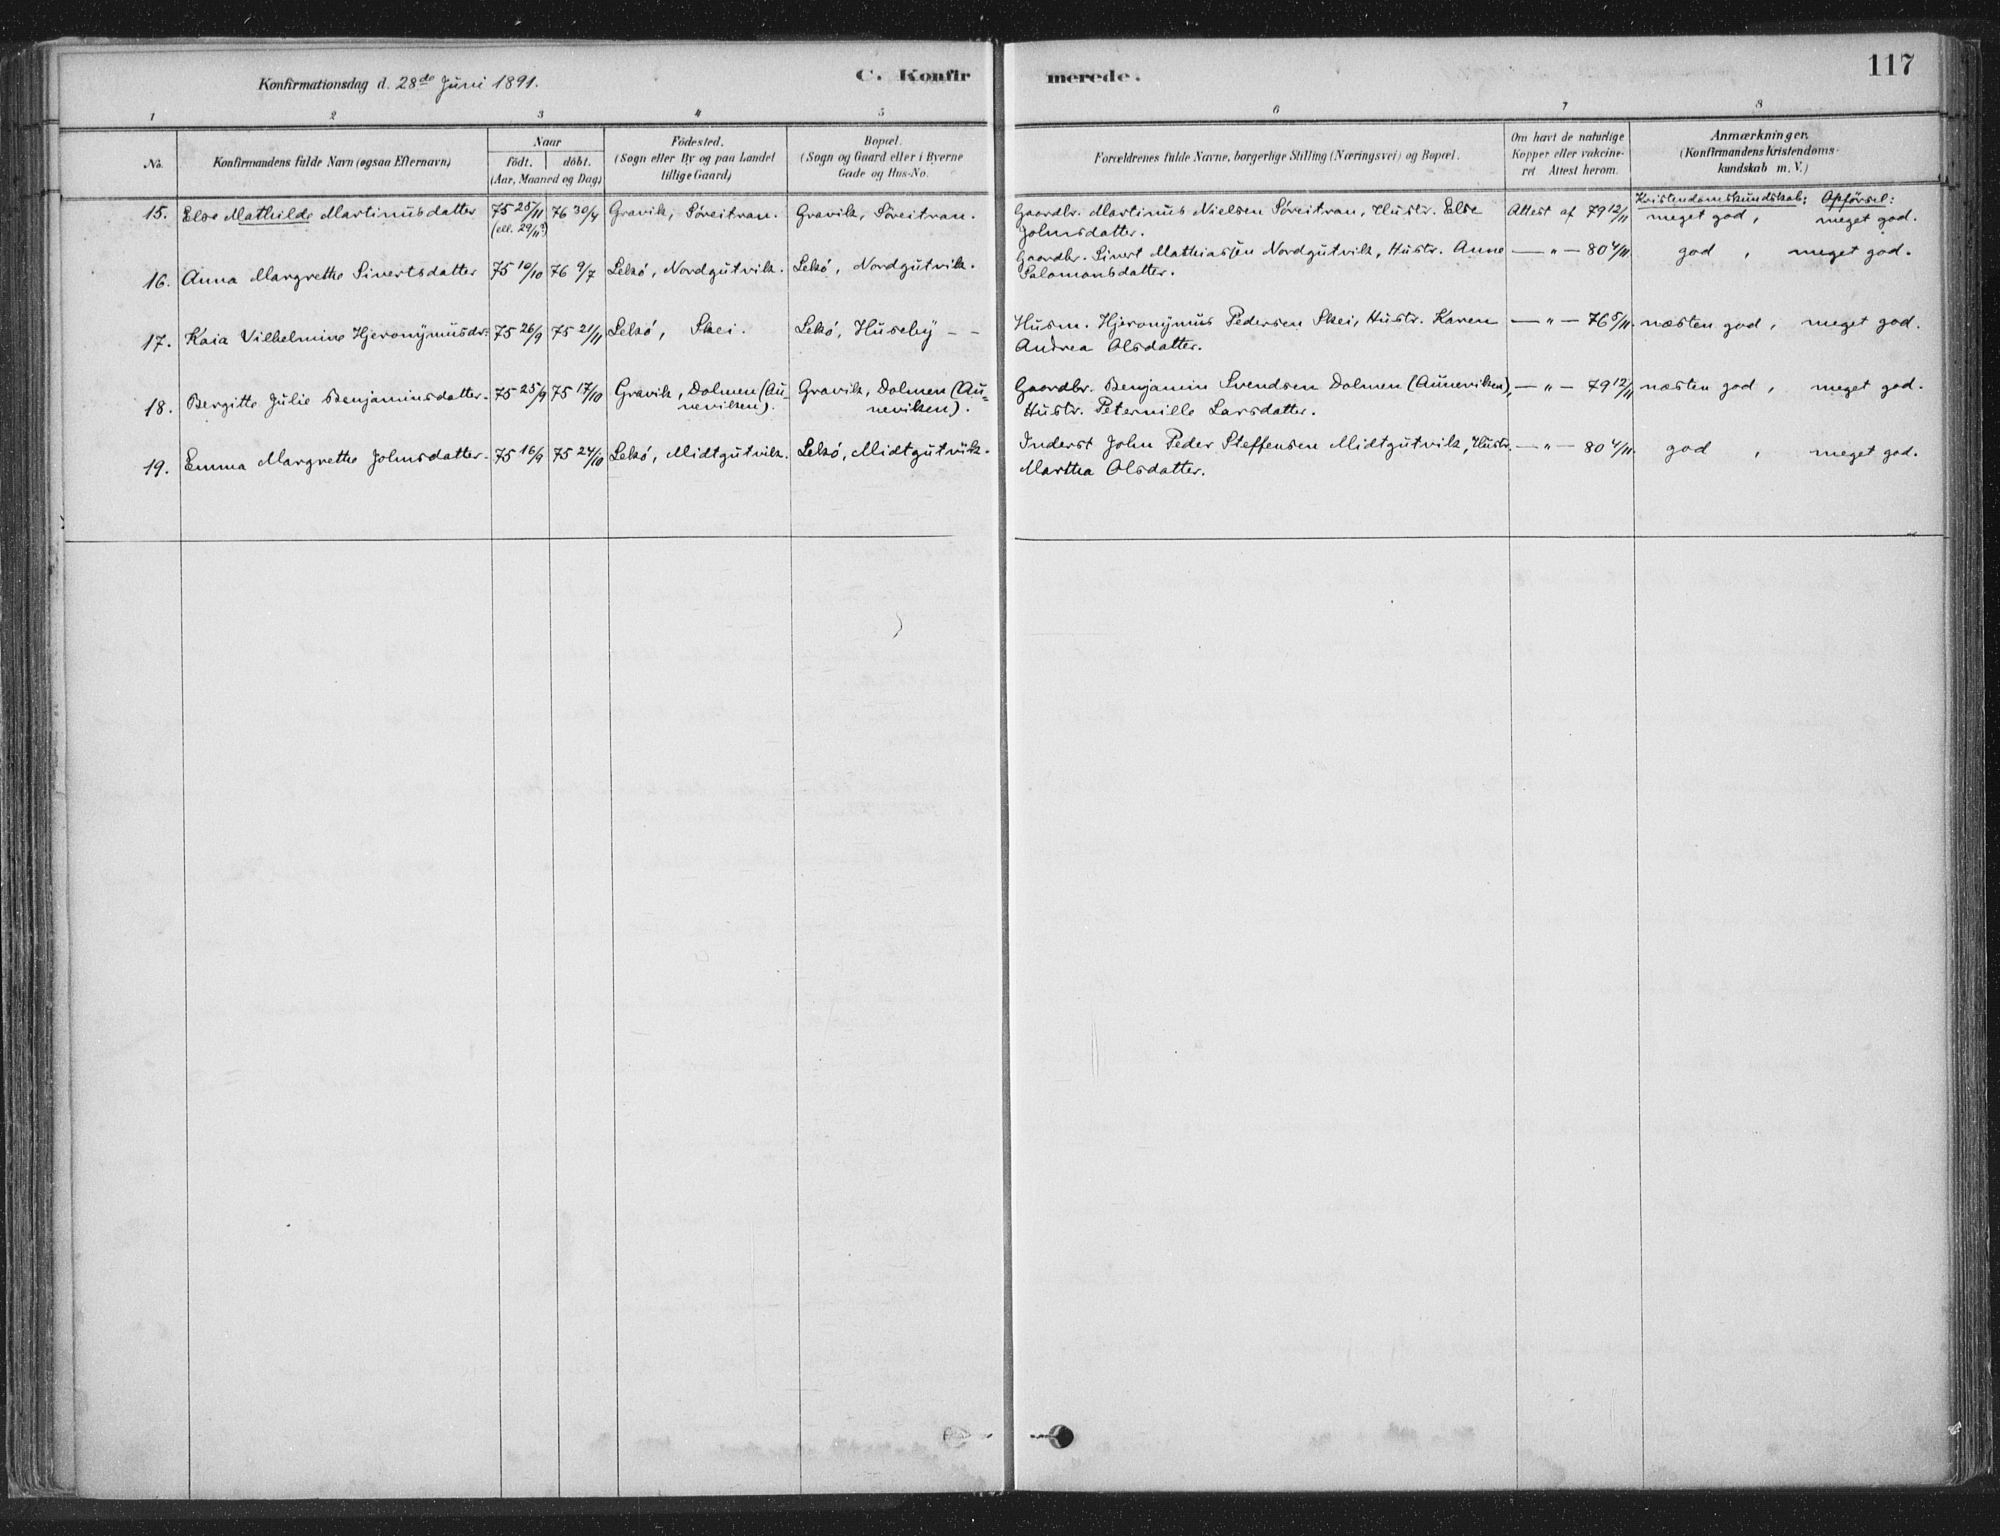 117
Konfirmationsdag d. 28de Juni 1891.
C. Konfirmerede.
1 2 3 4 5 6 7 8
No.
Konfirmandens fulde Navn (ogsaa Efternavn)
Naar
födt. döbt.
(Aar, Maaned og Dag)
Födested.
(Sogn eller By og paa Landet
tillige Gaard)
Bopæl.
(Sogn og Gaard eller i Byerne
Gade og Hus-No.
Forældrenes fulde Navne, borgerlige Stilling (Næringsvei) og Bopæl.
Om havt de naturlige
Kopper eller vakcine-
ret Attest herom.
Anmærkninger.
(Konfirmandens Kristendoms-
kundskab m. V.)
Kristendomskundskab: Opførsel:
15. Else Mathilde Martinusdatter 75 25/11 76 30/4 Gravik, Søreitran. Gravik, Søreitran. Gaardbr. Martinus Nielsen Søreitran, Hustr. Else Attest af 79 12/11 meget god, meget god.
(ell. 29/11?) Johnsdatter.
16. Anna Margrethe Sivertsdatter 75 10/10 76 9/7 Lekø, Nordgutvik. Lekø, Nordgutvik. Gaardbr. Sivert Mathiassen Nordgutvik, Hustr. Anne — " — 80 4/11. god, meget god.
Salomonsdatter.
17. Kaia Vilhelmine Hjeronymusdr. 75 26/9 75 21/11 Lekø, Skei. Lekø, Huseby - - Husm. Hjeronymus Pedersen Skei, Hustr. Karen — " — 76 5/11. næsten god, meget god.
Andrea Olsdatter.
18. Bergitte Julie Benjaminsdatter. 75 25/9 75 17/10 Gravik, Dolmen (Au- Gravik, Dolmen (Au= Gaardbr. Benjamin Svendsen Dolmen (Auneviken), — " — 79 12/11 næsten god, meget god.
neviken). neviken). Hustr. Peternille Larsdatter.
19. Emma Margrethe Johnsdatter. 75 16/9 75 24/10 Lekø, Midtgutvik. Lekø, Midtgutvik. Inderst John Peder Steffensen Midtgutvik, Hustr. — " — 80 4/11. god, meget god.
Martha Olsdatter.